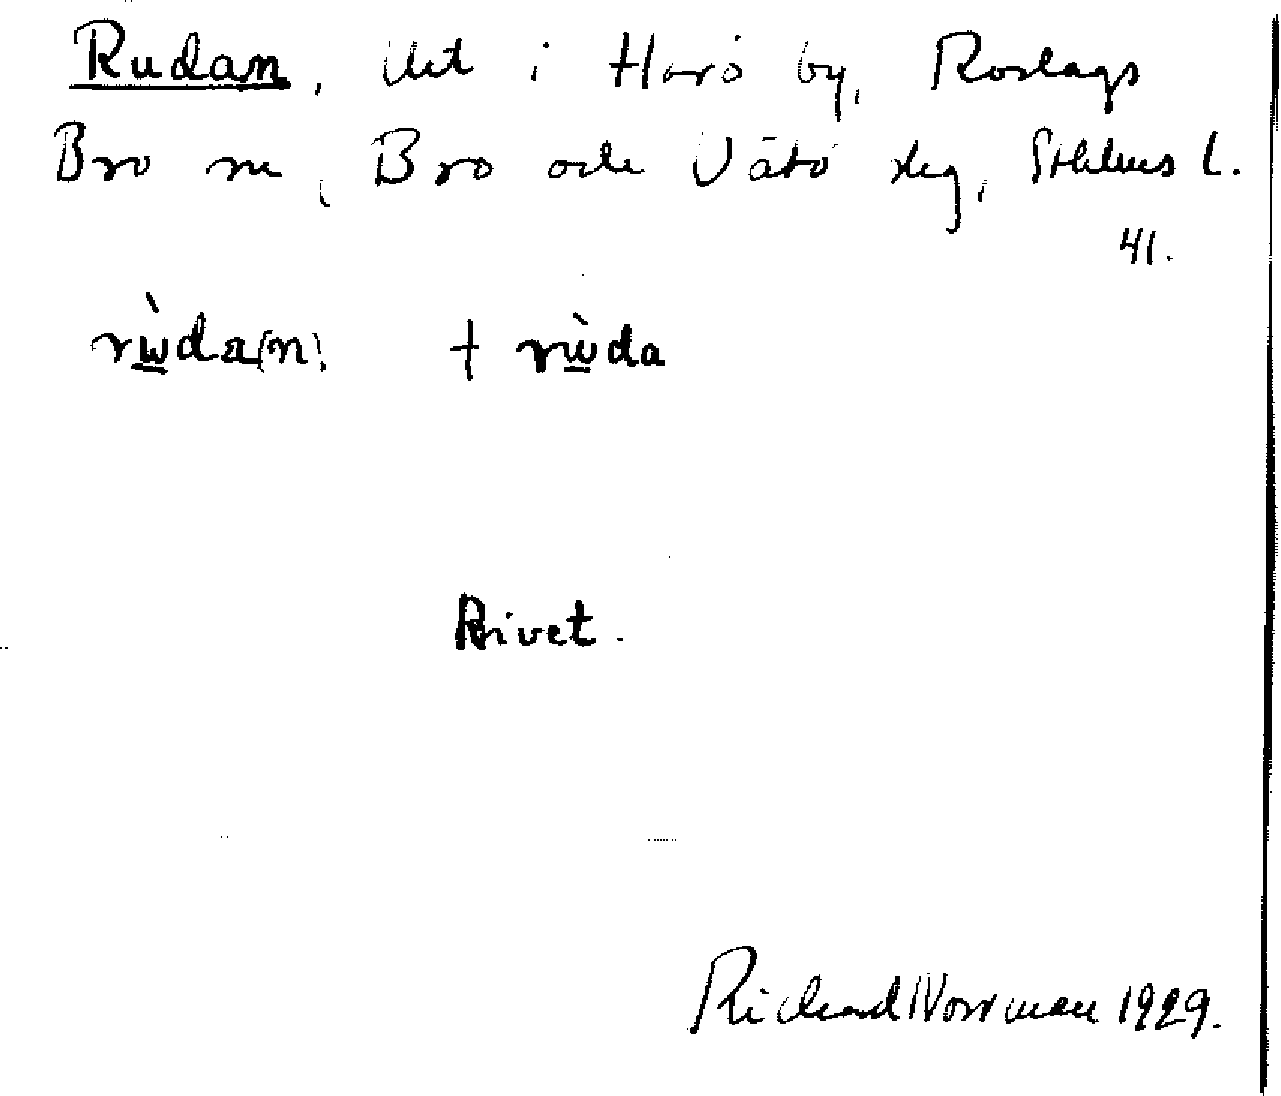 Rudan, utet i Harö by, Roslags
Bro sn, Bro och Vätö skg, Sthlms l.
41.
rẁda(n) + rẁda
Rivet.
Richard Norrman 1929.